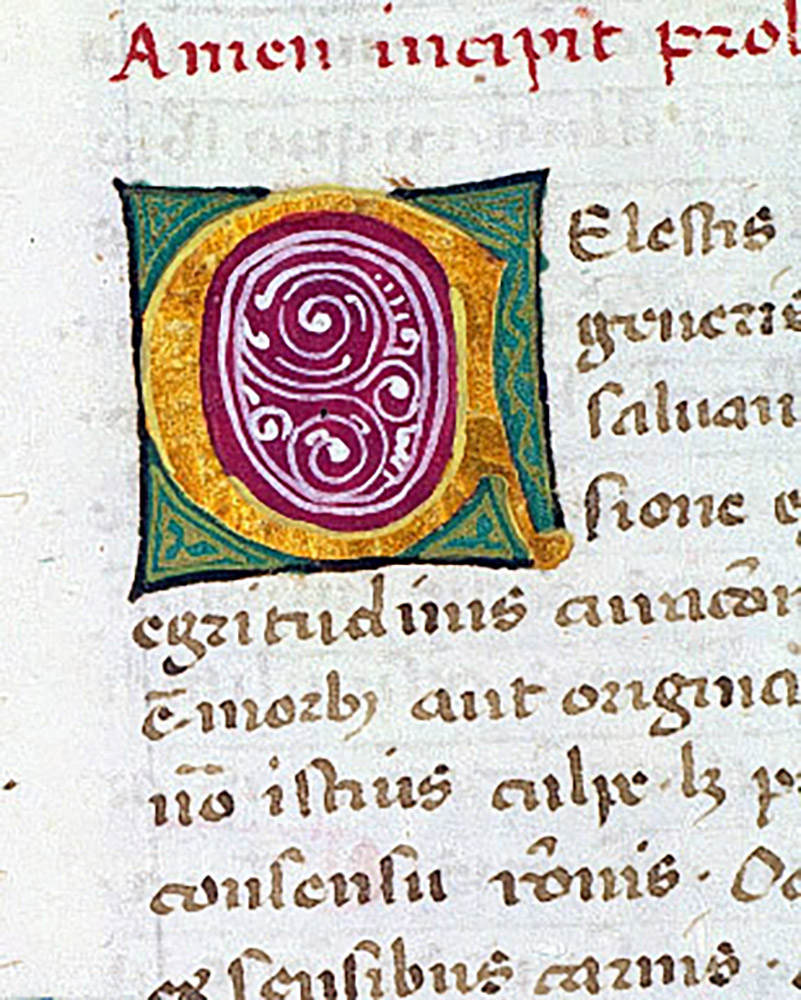 Amen incipit prol
CElestis
generis
saluan
sione e
egritudinis
ē morbꝫ aut origina
nō istius culpe · lꝫ p
consensu rōnis · Oc
ex sensibus carnis ·